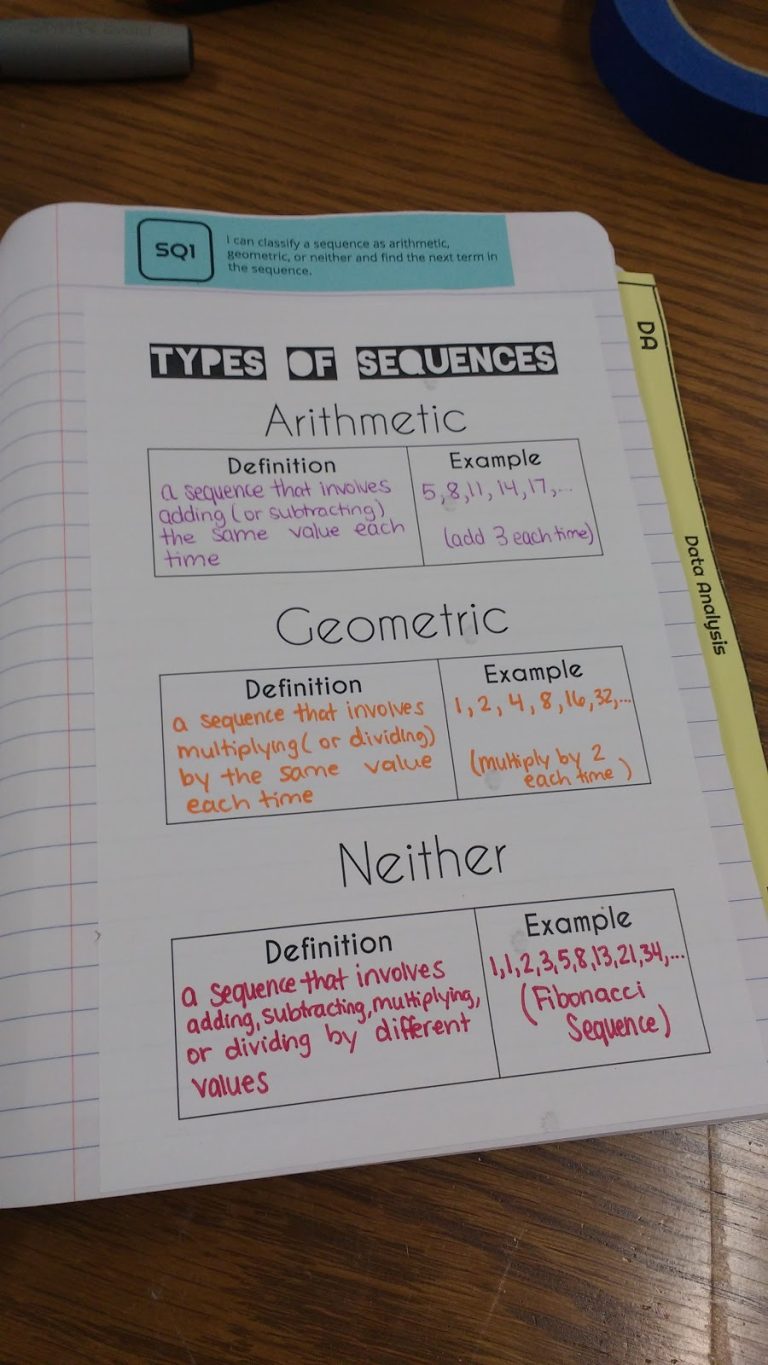 SQ1
I can classify a sequence as arithmetic,
geometric, or neither and find the next term in
the sequence.
DA
Data Analysis
TYPES OF SEQUENCES
Arithmetic
Definition
a sequence that involves
adding (or subtracting)
the same value each
time
Example
5, 8, 11, 14, 17, ...
(add 3 each time)
Geometric
Definition
a sequence that involves
multiplying (or dividing)
by the same value
each time
Example
1, 2, 4, 8, 16, 32, ...
(multiply by 2
each time)
Neither
Definition
a sequence that involves
adding, subtracting, multiplying,
or dividing by different
values
Example
1, 1, 2, 3, 5, 8, 13, 21, 34, ...
(Fibonacci
Sequence)